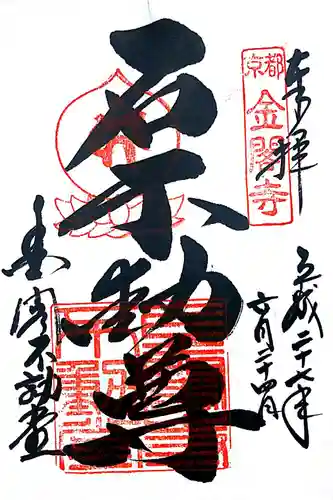 奉拝
京都
金閣寺
平成二十七年
六月二十四日
石不動尊
金閣不動堂